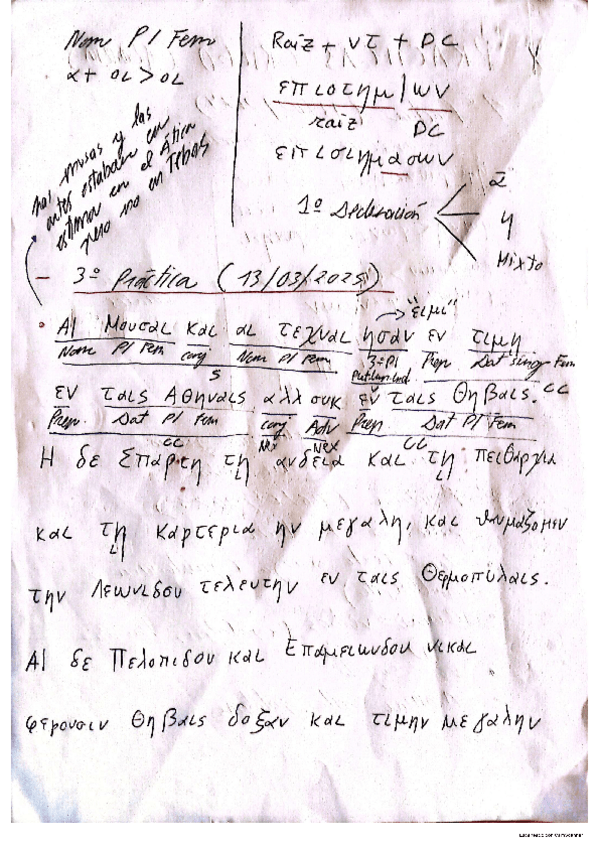 Nom Pl Fem
α + οι > οι
Raíz + VT + DC
επιστημ/ων
raíz DC
επιστημασων
1ª Declinación
α
η
Mixto
Las musas y las
artes estaban en
estima en el Ática
pero no en Tebas
- 3ª Práctica (13/03/2025)
"ειμι"
Αι Μουσαι και αι τεχναι ησαν εν τιμη
Nom Pl Fem conj Nom Pl Fem 3ª Pl Prep Dat Sing Fem
S
εν ταις Αθηναις αλλ ουκ εν ταις Θηβαις. CC
Prep Dat Pl Fem conj Adv Prep Dat Pl Fem
CC Nex Nex CC
Η δε Σπαρτη τη ανδεια και τη πειθαρχια
και τη καρτερια ην μεγαλη, και θαυμαζομεν
την Λεωνιδου τελευτην εν ταις Θερμοπυλαις.
Αι δε Πελοπιδου και Επαμεινωνδου νικαι
φερουσιν Θηβαις δοξαν και τιμην μεγαλην